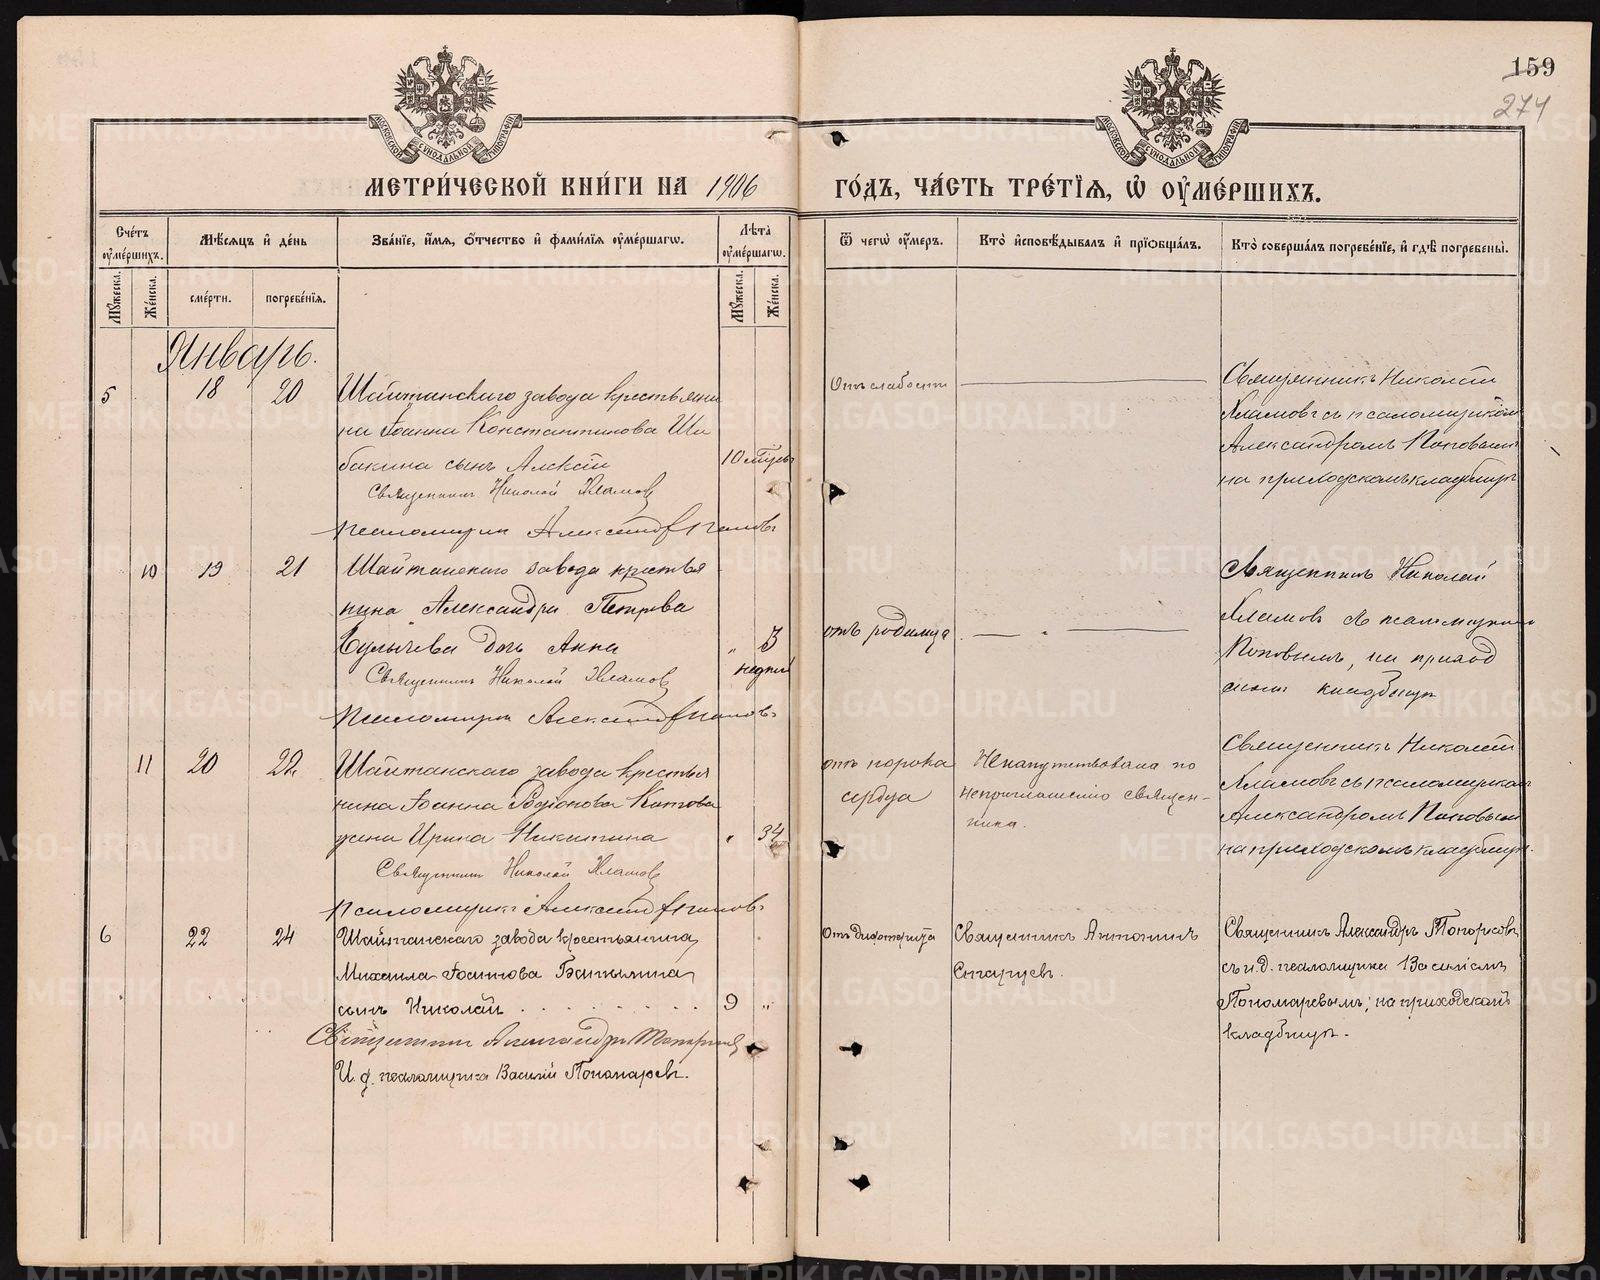 159
274
МЕТРИ́ЧЕСКОЙ КНИ́ГИ НА 1906
ГО́ДЪ, ЧА́СТЬ ТРЕ́ТІѦ, Ѿ ОУМЕ́РШИХЪ.
Сче́тъ оумершихъ.
Мѣсѧцъ и де́нь
Зва́ніе, и́мѧ, о́тчество и фами́лїѧ оуме́ршагѡ.
Лѣта̀ оуме́ршагѡ.
Ѿ чегѡ̀ оу́меръ.
Кто̀ исповѣ́дывалъ и прїѡбща́лъ.
Кто̀ соверша́лъ погребе́нїе, и гдѣ̀ погребены̀.
Мꙋжеска.
Же́нска.
сме́рти.
погребе́нїѧ.
Мꙋжеска.
Же́нска.
Январь.
5 18 20 Шайтанскаго завода крестьяни
на Іоанна Константинова Ши
бакина сынъ Алексій 10
Священникъ Николай Хламовъ
псаломщикъ Александръ Поповъ
Отъ слабости
Священникъ Николай
Хламовъ съ псаломщикомъ
Александромъ Поповымъ
на приходскомъ кладбищѣ
10 19 21 Шайтанскаго завода крестья
нина Александра Петрова
Булычева дочь Анна " 3
недѣли
Священникъ Николай Хламовъ
псаломщикъ Александръ Поповъ
отъ родимца
Священникъ Николай
Хламовъ съ псаломщикомъ
Поповымъ, на приход
скомъ кладбищѣ
11 20 22 Шайтанскаго завода крестья
нина Іоанна Родіонова Котова
жена Ирина Никитина " 34
Священникъ Николай Хламовъ
псаломщикъ Александръ Поповъ
отъ порока
сердца
Ненапутствована по
неприглашенію священ-
ника.
Священникъ Николай
Хламовъ съ псаломщикомъ
Александромъ Поповымъ
на приходскомъ кладбищѣ.
6 22 24 Шайтанскаго завода крестьянина
Михаила Іоаннова
сынъ Николай 9 "
Священникъ Александръ Топорковъ
И. д. псаломщика Василій Пономаревъ.
Отъ дифтерита
Священникъ Антонинъ
Священникъ Александръ Топорковъ
съ и. д. псаломщика Василіемъ
Пономаревымъ; на приходскомъ
кладбищѣ.
METRIKI.GASO-URAL.RU